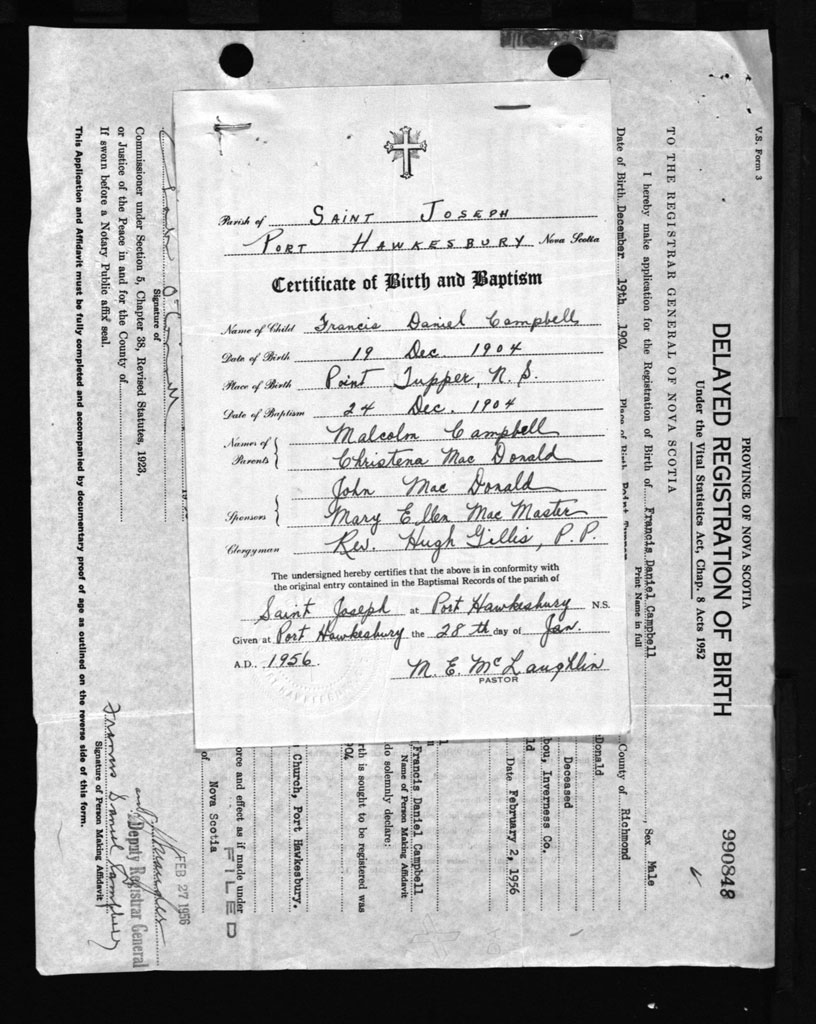 Parish of SAINT JOSEPH
PORT HAWKESBURY Nova Scotia
Certificate of Birth and Baptism
Name of Child Francis Daniel Campbell
Date of Birth 19 Dec. 1904
Place of Birth Point Tupper, N. S.
Date of Baptism 24 Dec. 1904
Names of Parents { Malcolm Campbell
Christena Mac Donald
Sponsors { John Mac Donald
Mary Ellen Mac Master
Clergyman Rev. Hugh Gillis, P. P.
The undersigned hereby certifies that the above is in conformity with
the original entry contained in the Baptismal Records of the parish of
Saint Joseph at Port Hawkesbury N.S.
Given at Port Hawkesbury the 28th day of Jan.
A.D. 1956. M. E. McLaughlin
PASTOR
V.S. Form 3
PROVINCE OF NOVA SCOTIA
DELAYED REGISTRATION OF BIRTH
990848
Under the Vital Statistics Act, Chap. 8 Acts 1952
TO THE REGISTRAR GENERAL OF NOVA SCOTIA
I hereby make application for the Registration of Birth of Francis Daniel Campbell, Sex Male
Print Name in full
Date of Birth December 19th 1904 Place of Birth Point Tupper County of Richmond
Donald
Deceased
bou, Inverness Co.
ld
Date February 2, 1956
Francis Daniel Campbell
Name of Person Making Affidavit
do solemnly declare:
rth is sought to be registered was
904
Church, Port Hawkesbury.
orce and effect as if made under
FILED
of Nova Scotia
FEB 27 1956
Deputy Registrar General
Signature of
Commissioner under Section 5, Chapter 38, Revised Statutes, 1923,
or Justice of the Peace in and for the County of
If sworn before a Notary Public affix seal.
Francis Daniel Campbell
Signature of Person Making Affidavit
This Application and Affidavit must be fully completed and accompanied by documentary proof of age as outlined on the reverse side of this form.